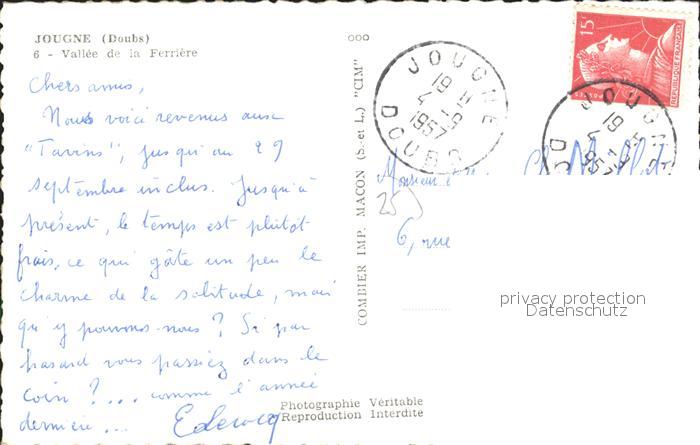 JOUGNE (Doubs)
6 - Vallée de la Ferrière
Chers amis,
Nous voici revenus aux
"Tavins", jusqu'au 29
septembre inclus. Jusqu'à
présent, le temps est plutôt
frais, ce qui gâte un peu le
charme de la solitude, mais
qu'y pouvons-nous ? Si par
hasard vous passiez dans le
coin ?... comme l'année
dernière...
Photographie Véritable
Reproduction Interdite
COMBIER IMP. MACON (S.-et-L.) "CIM"
JOUGNE
19 H
4 - 9
1957
DOUBS
15F
REPUBLIQUE FRANÇAISE
JOUGNE
19 H
4
957
DO
Monsieur
25
6, rue
privacy protection
Datenschutz